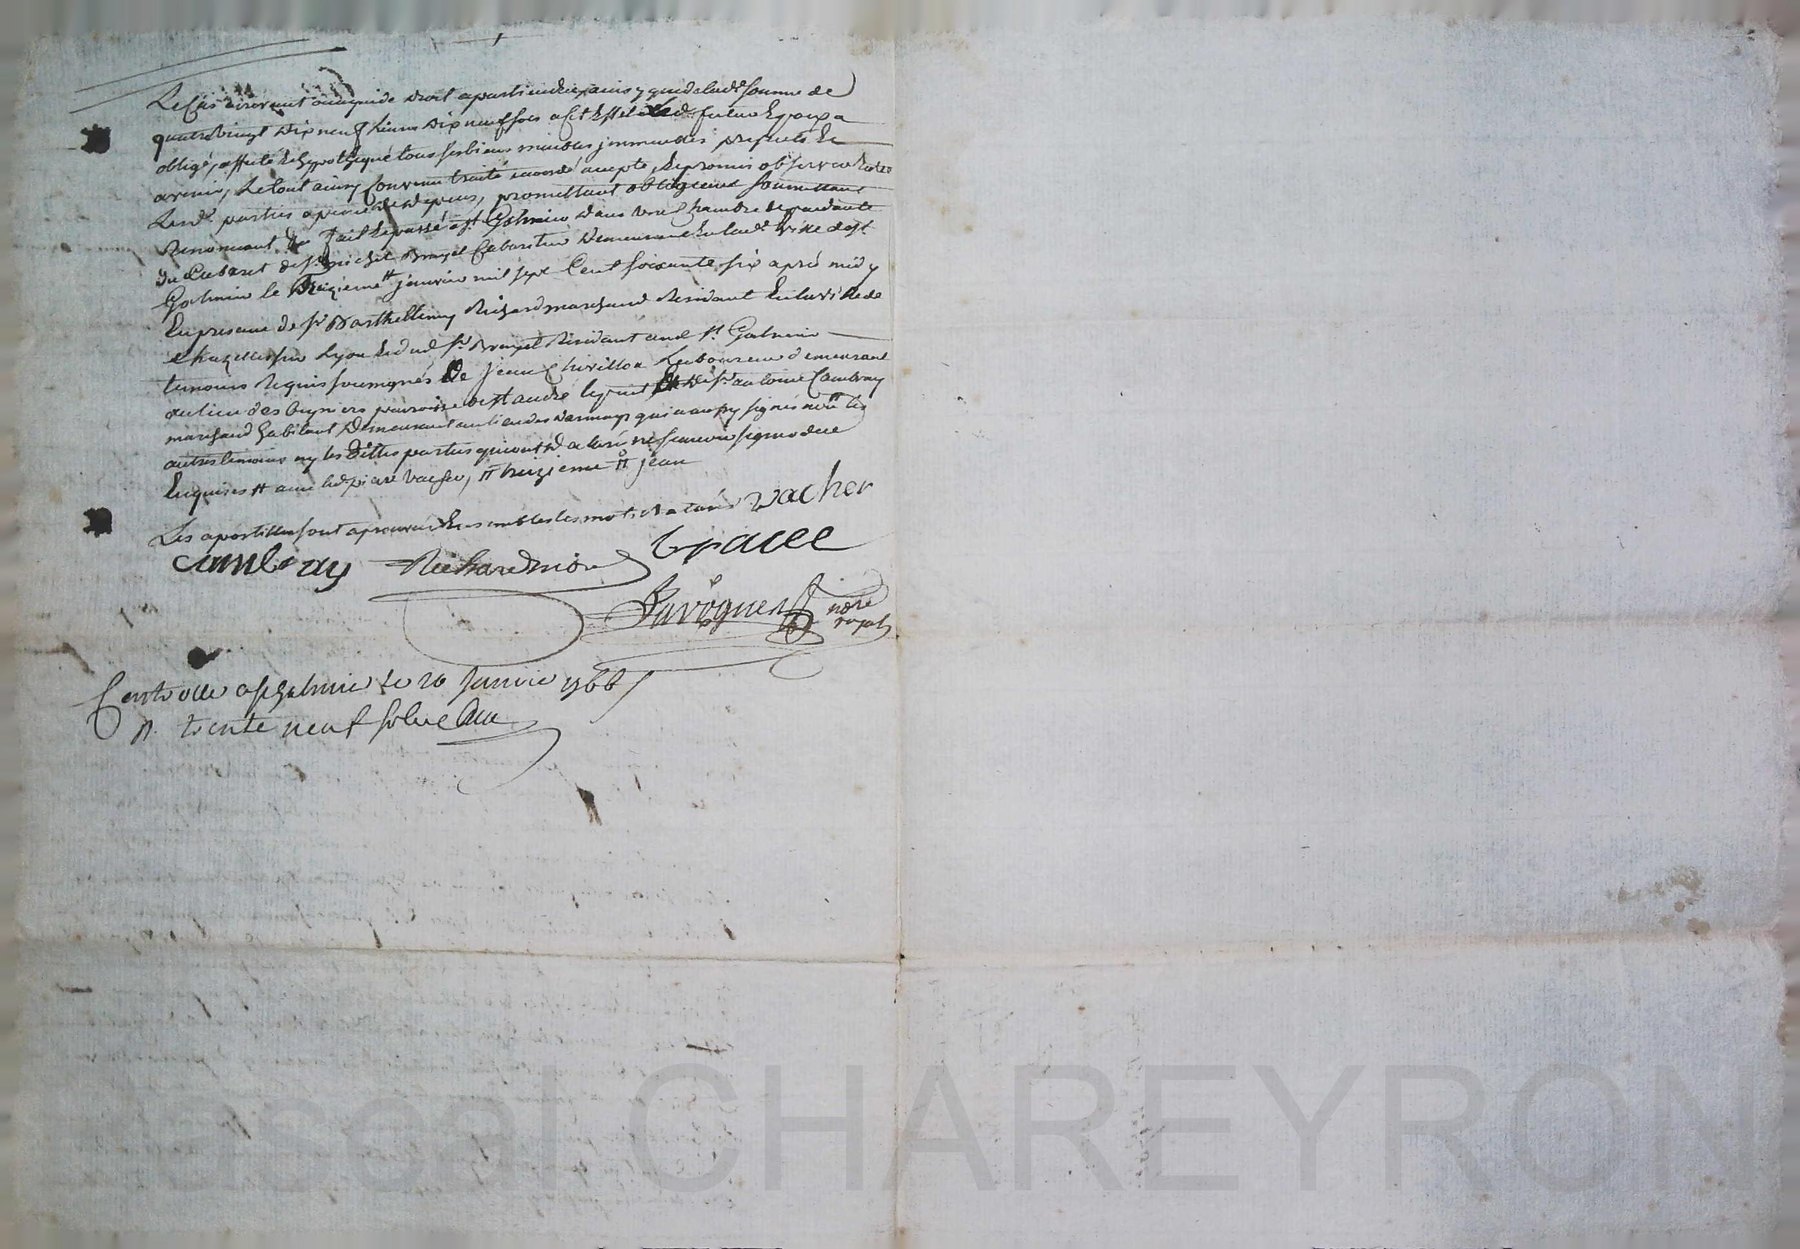 Le cas arrivant ou a qui de droit apartiendra, ainsy que de lad.e somme de
quatre vingt dix neuf livres dix neuf sols a cet effet led. futur Epoux a
obligé, affecté Et hypothequé tous ses biens meubles immeubles presents Et
avenir, Le tout ainsy Convenu traité accordé accepté, Et promis observer Entre
Lesd. parties a peine de depens, promettant obligeant soumettant
Renonçant fait Et passé a st. Galmier dans une Chambre dependante
du Cabaret de sr. michel Cabaretier demeurant En lad. ville de st
Galmier le treizieme # janvier mil sept Cent soixante six aprés midy
En presence de sr. Barthellemy Richard marchand Residant En la ville de
Chazelles sur Lyon Et dud. sr. Residant aud. st. Galmier
temoins Requis soussignés De jean Chirillon Laboureur demeurant
au lieu des paroisse de st andré de sr. antoine Cambray
marchand habitant demeurant au lieu des qui a aussy signé non les
autres temoins ny les dittes parties qui ont declaré ne sçavoir signer de ce
Enquises # avec led. piere vacher, # treizieme # jean
Les apostilles sont aprouvées Ensembles les mots raturés vacher
Cambray Richard mior
Favrögues nore
royal
Controllé a st Galmier le 26 Janvier 1766
R. trente neuf sols
Pascal CHAREYRON